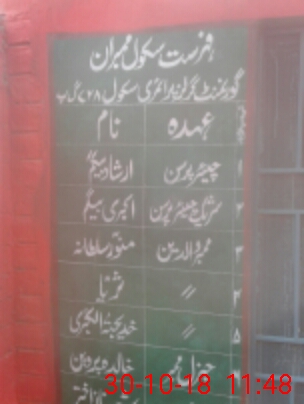 فہرست سکول ممبران
گورنمنٹ گرلز پرائمری سکول ۷۲۸ گ ب
عہدہ نام
۱ چیئرپرسن ارشاد بیگم
۲ چیئرپرسن اکبری بیگم
۳ ممبر والدین منور سلطانہ
۴ 〃 ثریا
۵ 〃 خدیجۃ الکبری
جنرل ممبر خالدہ پروین
اختر
30-10-18 11:48